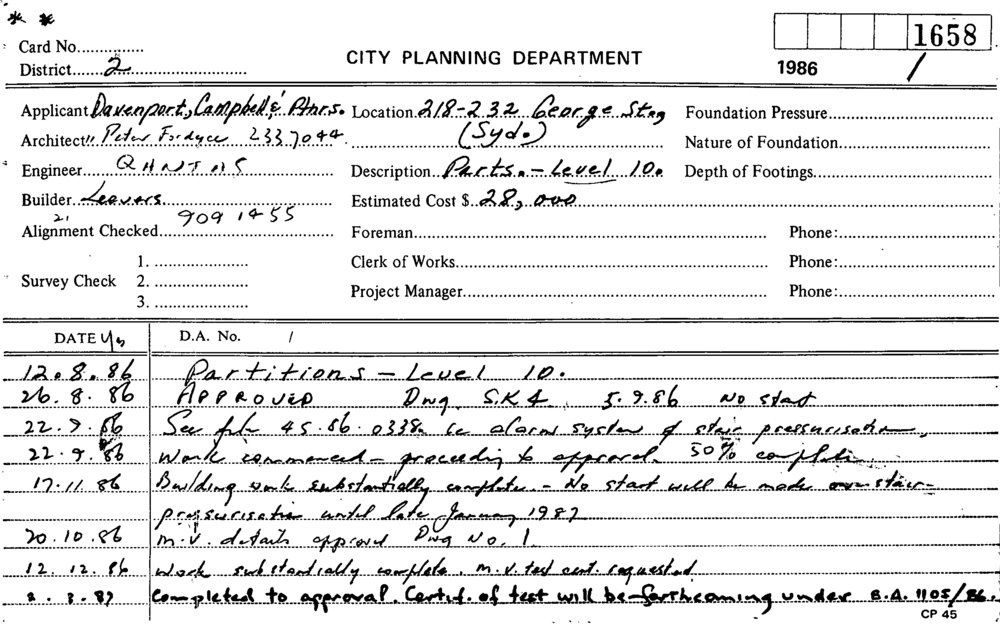 * *
Card No...............
District......2..............................
CITY PLANNING DEPARTMENT
1658
1986 /
Applicant Davenport, Campbell & Ptnrs.
Architect " Peter Fordyce 2337044
Engineer
Builder Leavers
21 9091455
Alignment Checked
Survey Check
1. .....................
2. .....................
3. .....................
Location 218-232 George St.,
(Syd.)
Description Parts. - Level 10.
Estimated Cost $ 28,000
Foreman
Clerk of Works
Project Manager
Foundation Pressure
Nature of Foundation
Depth of Footings
Phone:
Phone:
Phone:
DATE D.A. No. /
12.8.86 Partitions - Level 10.
26.8.86 APPROVED Dwg. S.K 4. 5.9.86 No start
22.9.86 See file 45.86.0338 re alarm system & stair pressurisation.
22.9.86 Work commenced - proceeding to approval. 50% complete.
17.11.86 Building work substantially complete - No start will be made on stair-
pressurisation until late January 1987
20.10.86 m.v. details approved Dwg No. 1.
12.12.86 Work substantially complete. m.v. test cert. requested.
2.3.87 Completed to approval. Certif. of test will be forthcoming under B.A. 1105/86.
CP 45